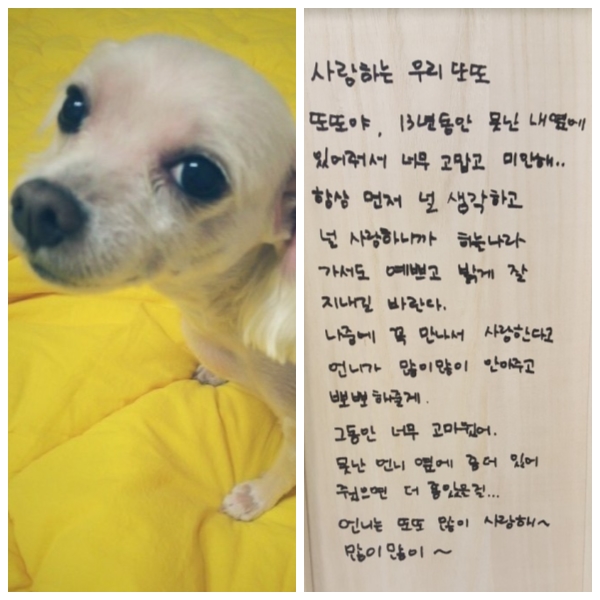 사랑하는 우리 또또
또또야, 13년동안 못난 내옆에
있어줘서 너무 고맙고 미안해..
항상 먼저 널 생각하고
널 사랑하니까 하늘나라
가서도 예쁘고 밝게 잘
지내길 바란다.
나중에 꼭 만나서 사랑한다고
언니가 많이많이 안아주고
뽀뽀해줄게.
그동안 너무 고마웠어.
못난 언니 옆에 좀더 있어
줬으면 더 좋았을걸...
언니는 또또 많이 사랑해~
많이많이~